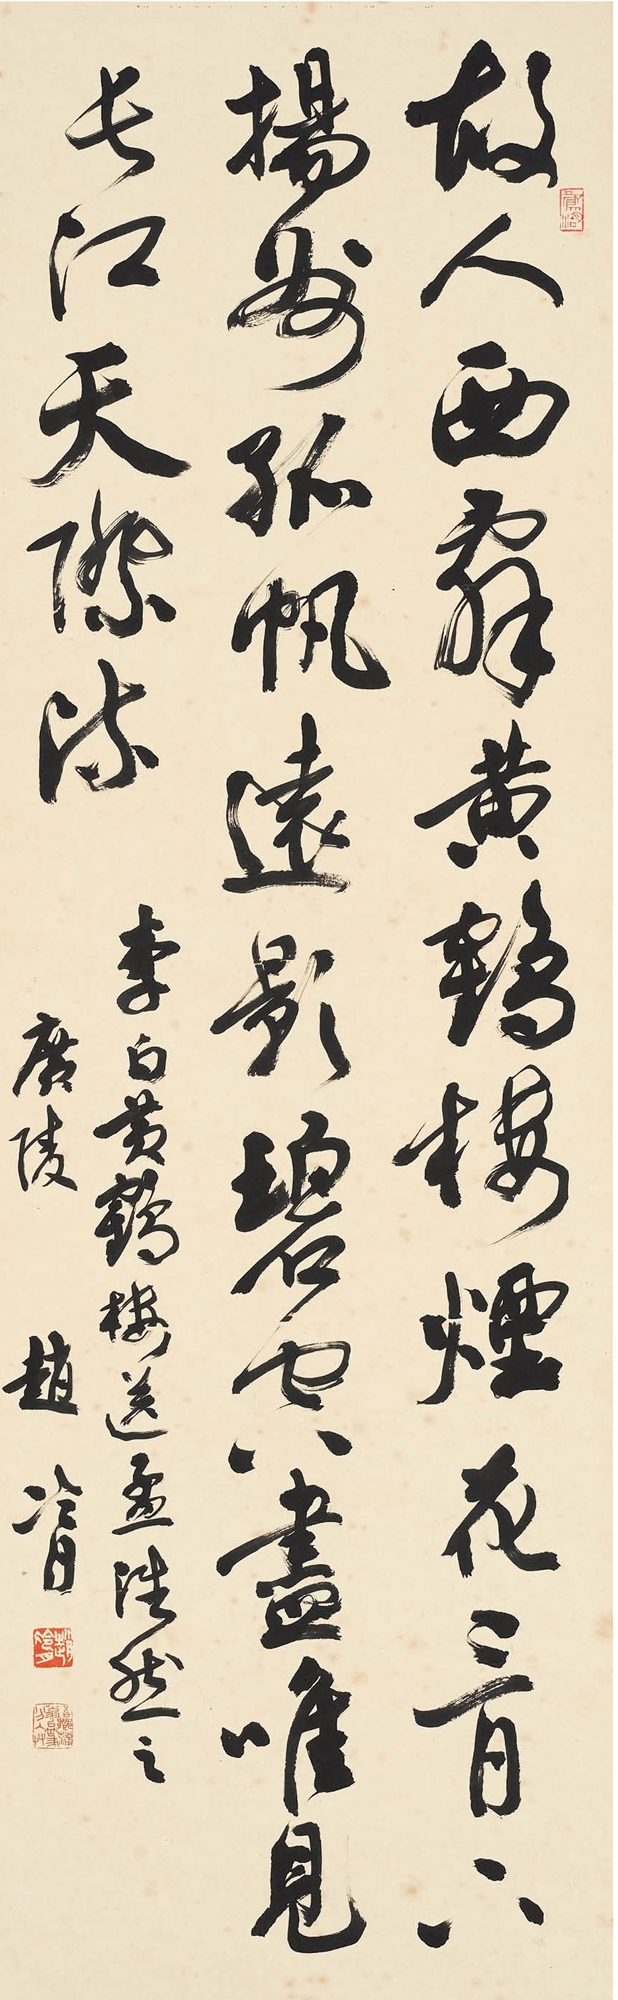 故人西辭黄鶴樓煙花三月下
揚州孤帆遠影碧空盡唯見
長江天際流
李白黄鶴樓送孟浩然之
廣陵 趙冷月
趙冷月